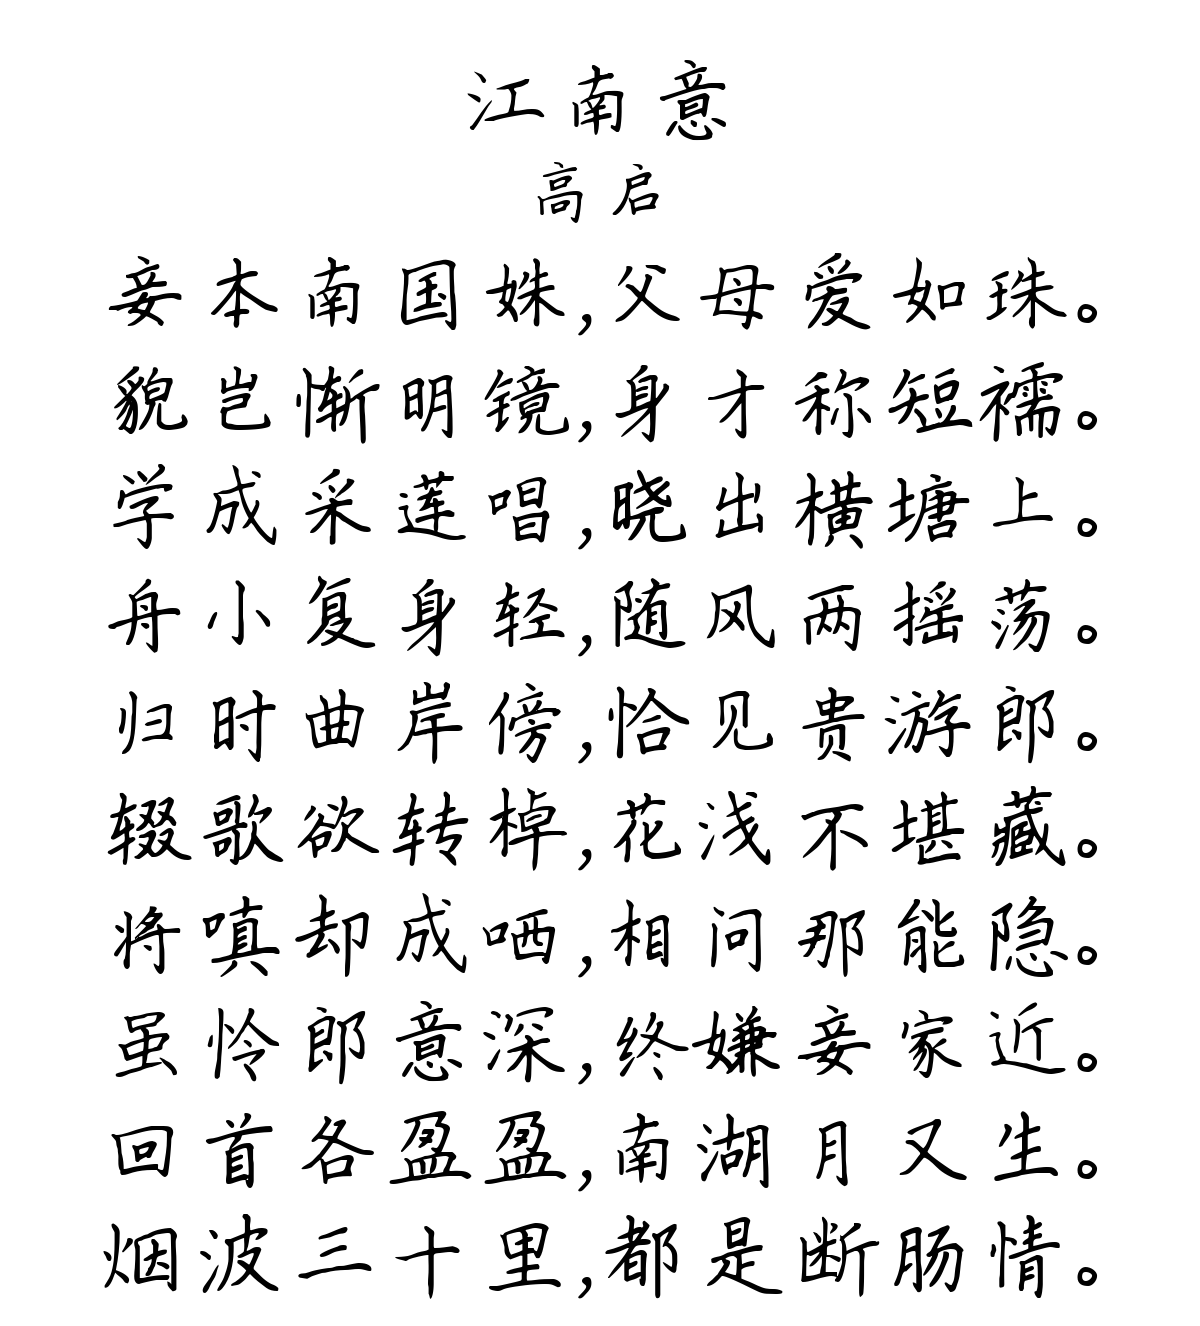 江南意
高启
妾本南国姝,父母爱如珠。
貌岂惭明镜,身才称短襦。
学成采莲唱,晓出横塘上。
舟小复身轻,随风两摇荡。
归时曲岸傍,恰见贵游郎。
辍歌欲转棹,花浅不堪藏。
将嗔却成哂,相问那能隐。
虽怜郎意深,终嫌妾家近。
回首各盈盈,南湖月又生。
烟波三十里,都是断肠情。